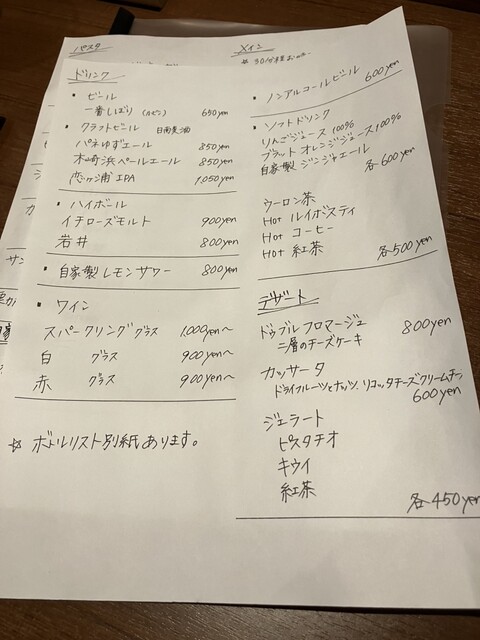 パスタ
メイン
☆ 30分程お
ドリンク
・ビール
一番しぼり (小ビン) 650yen
・クラフトビール 日南麦酒
パネゆずエール 850yen
木崎浜ペールエール 850yen
恋ヶ浦IPA 1,050yen
・ハイボール
イチローズモルト 900yen
岩井 800yen
・自家製レモンサワー 800yen
・ワイン
スパークリング グラス 1,000yen〜
白 グラス 900yen〜
赤 グラス 900yen〜
☆ ボトルリスト別紙あります。
・ノンアルコールビール 600yen
・ソフトドリンク
りんごジュース 100%
ブラッドオレンジジュース 100%
自家製 ジンジャエール 各600yen
ウーロン茶
Hot ルイボスティ
Hot コーヒー
Hot 紅茶 各500yen
デザート
ドゥブルフロマージュ 800yen
二層のチーズケーキ
カッサータ
ドライフルーツとナッツ、リコッタチーズクリームチー
600yen
ジェラート
ピスタチオ
キウイ
紅茶
各450yen